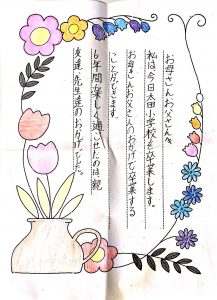 お母さんお父さんへ
私は、今日太田小学校を卒業します。
お母さんお父さんのおかげで卒業する
ことができます。
6年間楽しく過ごせたのは、親
友達、先生達のおかげでした。